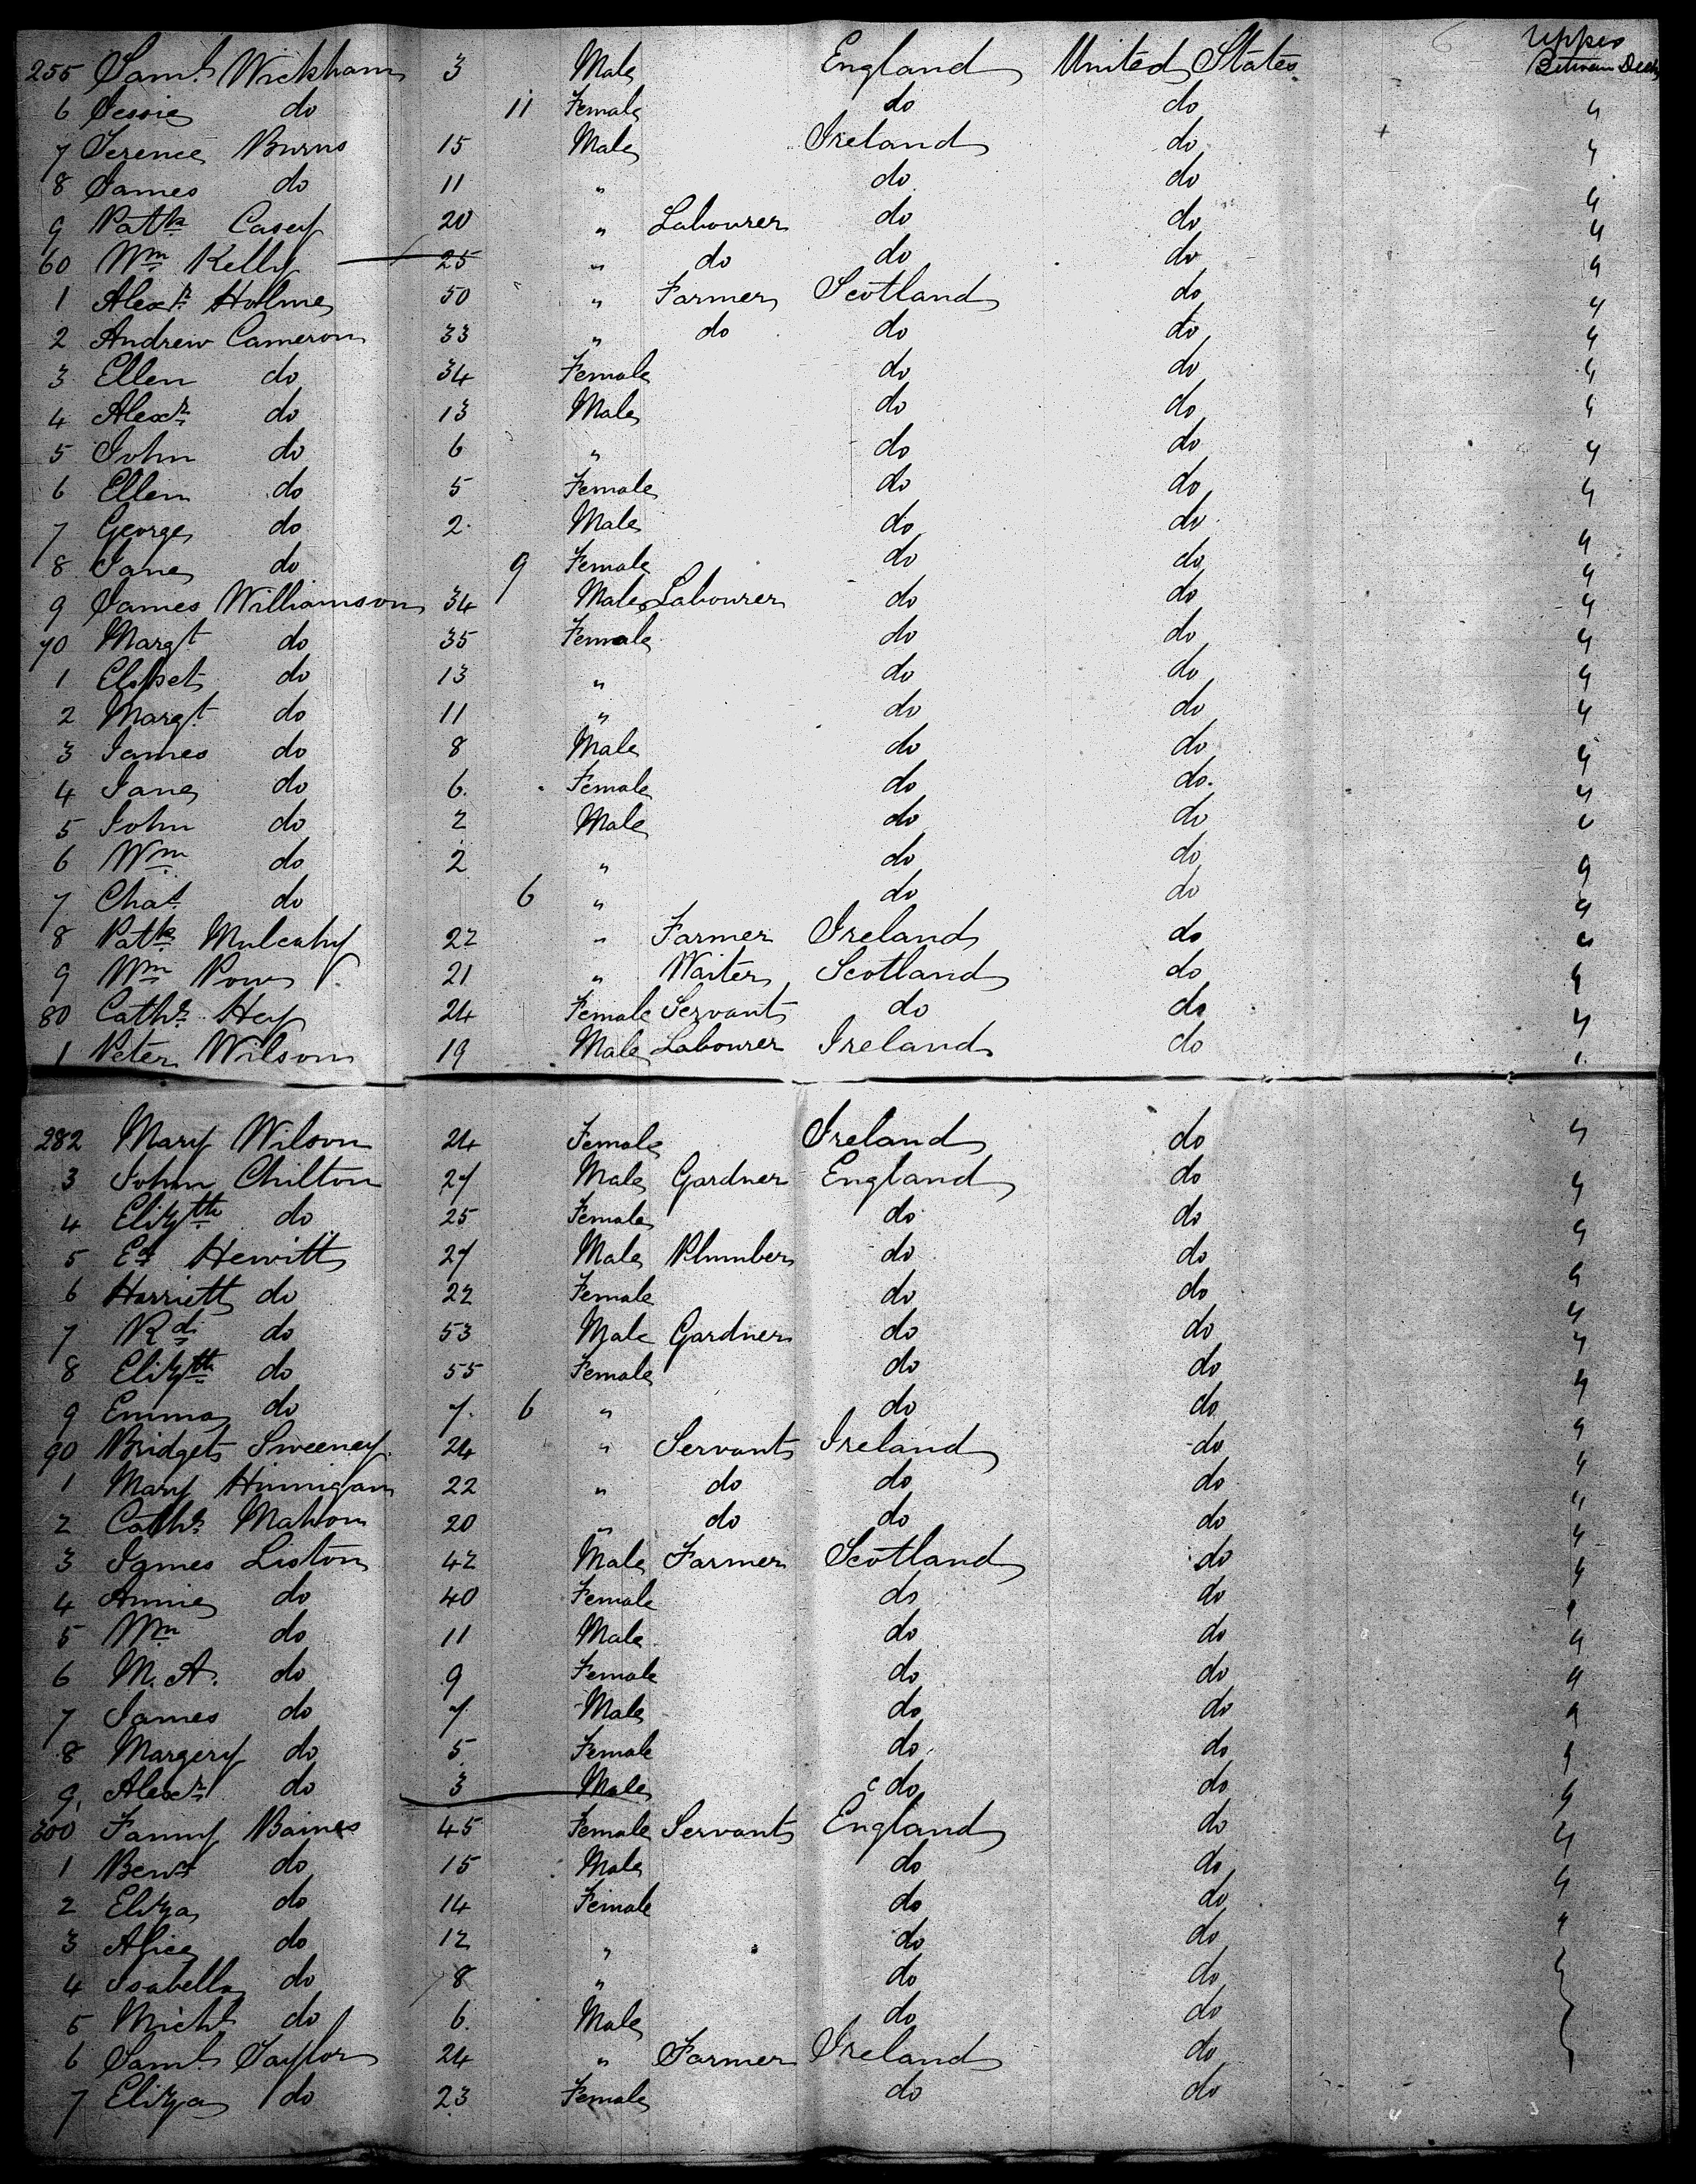 Upper
255 Saml Wickham 3 Male England United States Between Decks
6 Jessie do 11 Female do do "
7 Terence Burns 15 Male Ireland do "
8 James do 11 " do do "
9 Patk Casey 20 " Labourer do do "
60 Wm Kelly 25 " do do do "
1 Alexr Holme 50 " Farmer Scotland do "
2 Andrew Cameron 33 " do do do "
3 Ellen do 34 Female do do "
4 Alexr do 13 Male do do "
5 John do 6 " do do "
6 Ellen do 5 Female do do "
7 George do 2 Male do do "
8 Jane do 9 Female do do "
9 James Williamson 34 Male Labourer do do "
70 Margt do 35 Female do do "
1 Elspet do 13 " do do "
2 Margt do 11 " do do "
3 James do 8 Male do do "
4 Jane do 6 Female do do "
5 John do 2 Male do do "
6 Wm do 2 " do do "
7 Chas do 6 " do do "
8 Patk Mulcahy 22 " Farmer Ireland do "
9 Wm Pow 21 " Waiter Scotland do "
80 Cathr Hay 24 Female Servant do do "
1 Peter Wilson 19 Male Labourer Ireland do "
282 Mary Wilson 24 Female Ireland do "
3 John Chilton 27 Male Gardner England do "
4 Elizth do 25 Female do do "
5 Ed Hewitt 27 Male Plumber do do "
6 Harriett do 22 Female do do "
7 Rd do 53 Male Gardner do do "
8 Elizth do 55 Female do do "
9 Emma do 7 6 " do do "
90 Bridget Sweeney 24 " Servant Ireland do "
1 Mary Hinnigan 22 " do do do "
2 Cathr Mahon 20 " do do do "
3 James Liston 42 Male Farmer Scotland do "
4 Annie do 40 Female do do "
5 Wm do 11 Male do do "
6 M. A. do 9 Female do do "
7 James do 7 Male do do "
8 Margery do 5 Female do do "
9 Alexr do 3 Male do do "
300 Fanny Baines 45 Female Servant England do "
1 Benj do 15 Male do do "
2 Eliza do 14 Female do do "
3 Alice do 12 " do do "
4 Isabella do 8 " do do "
5 Michl do 6 Male do do
6 Saml Taylor 24 " Farmer Ireland do
7 Eliza do 23 Female do do